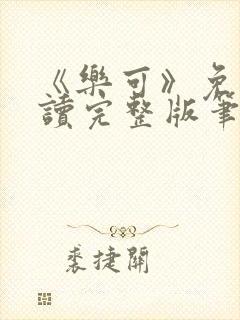 《樂可》免
讀完整版筆
裘捷開